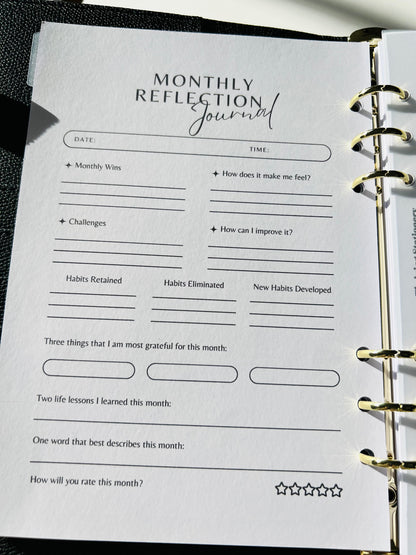 MONTHLY
REFLECTION
Journal
DATE: TIME:
Monthly Wins
How does it make me feel?
Challenges
How can I improve it?
Habits Retained
Habits Eliminated
New Habits Developed
Three things that I am most grateful for this month:
Two life lessons I learned this month:
One word that best describes this month:
How will you rate this month?